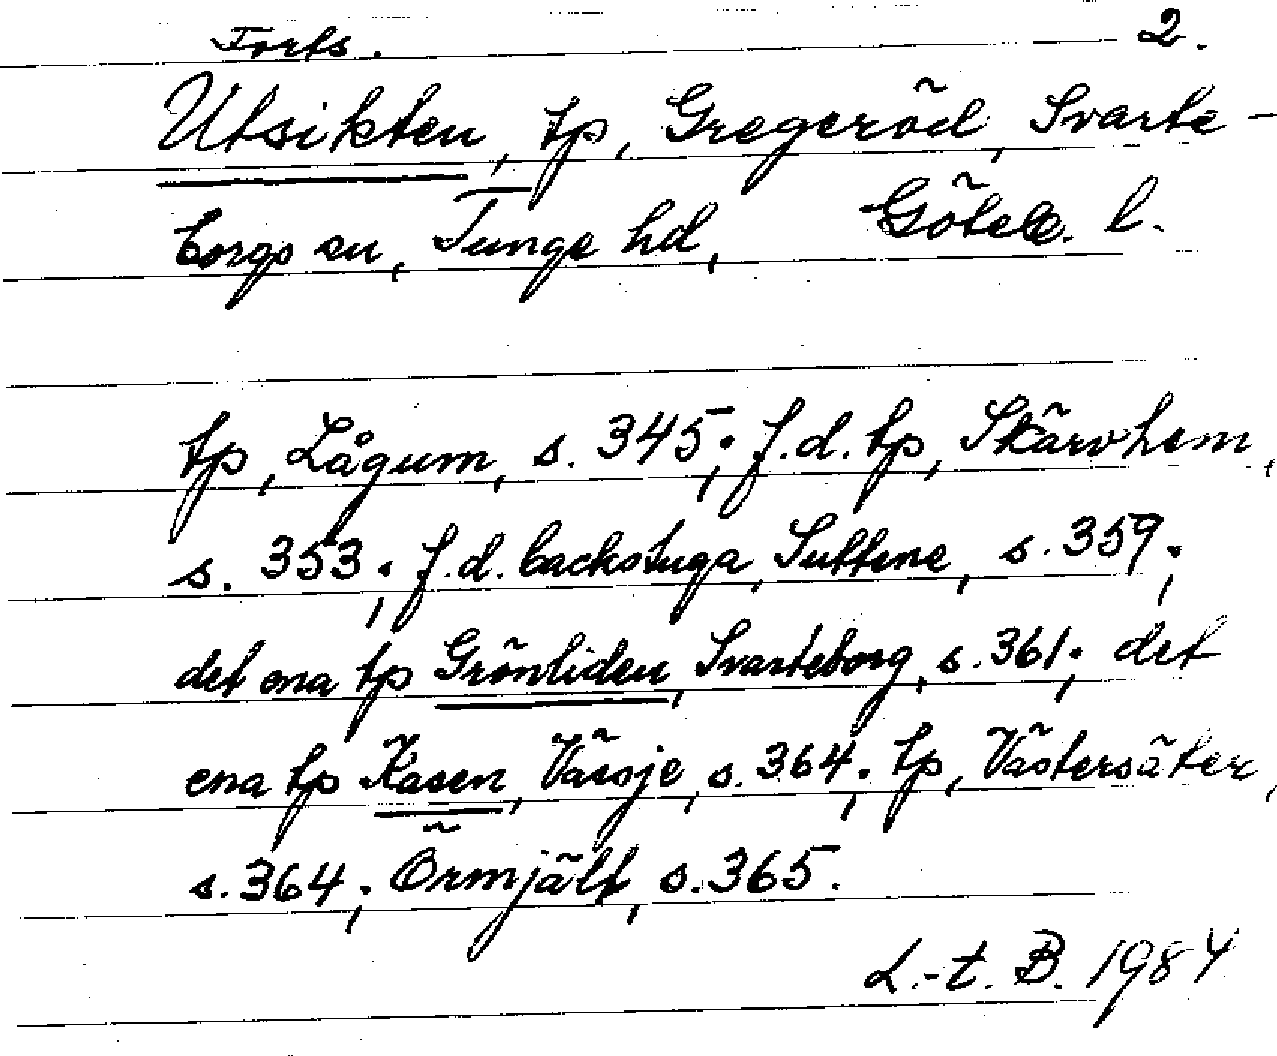 Forts. 2.
Utsikten, tp, Gregeröd, Svarte-
borgs sn, Tunge hd, Göteb. l.
tp, Lågum, s. 345; f.d. tp, Skärvhem,
s. 353; f.d. backstuga, Suttene, s. 359;
det ena tp Grönliden, Svarteborg, s. 361; det
ena tp Kasen, Vässje, s. 364; tp, Västersäter,
s. 364; Örmjält, s. 365.
L.-t. B. 1984